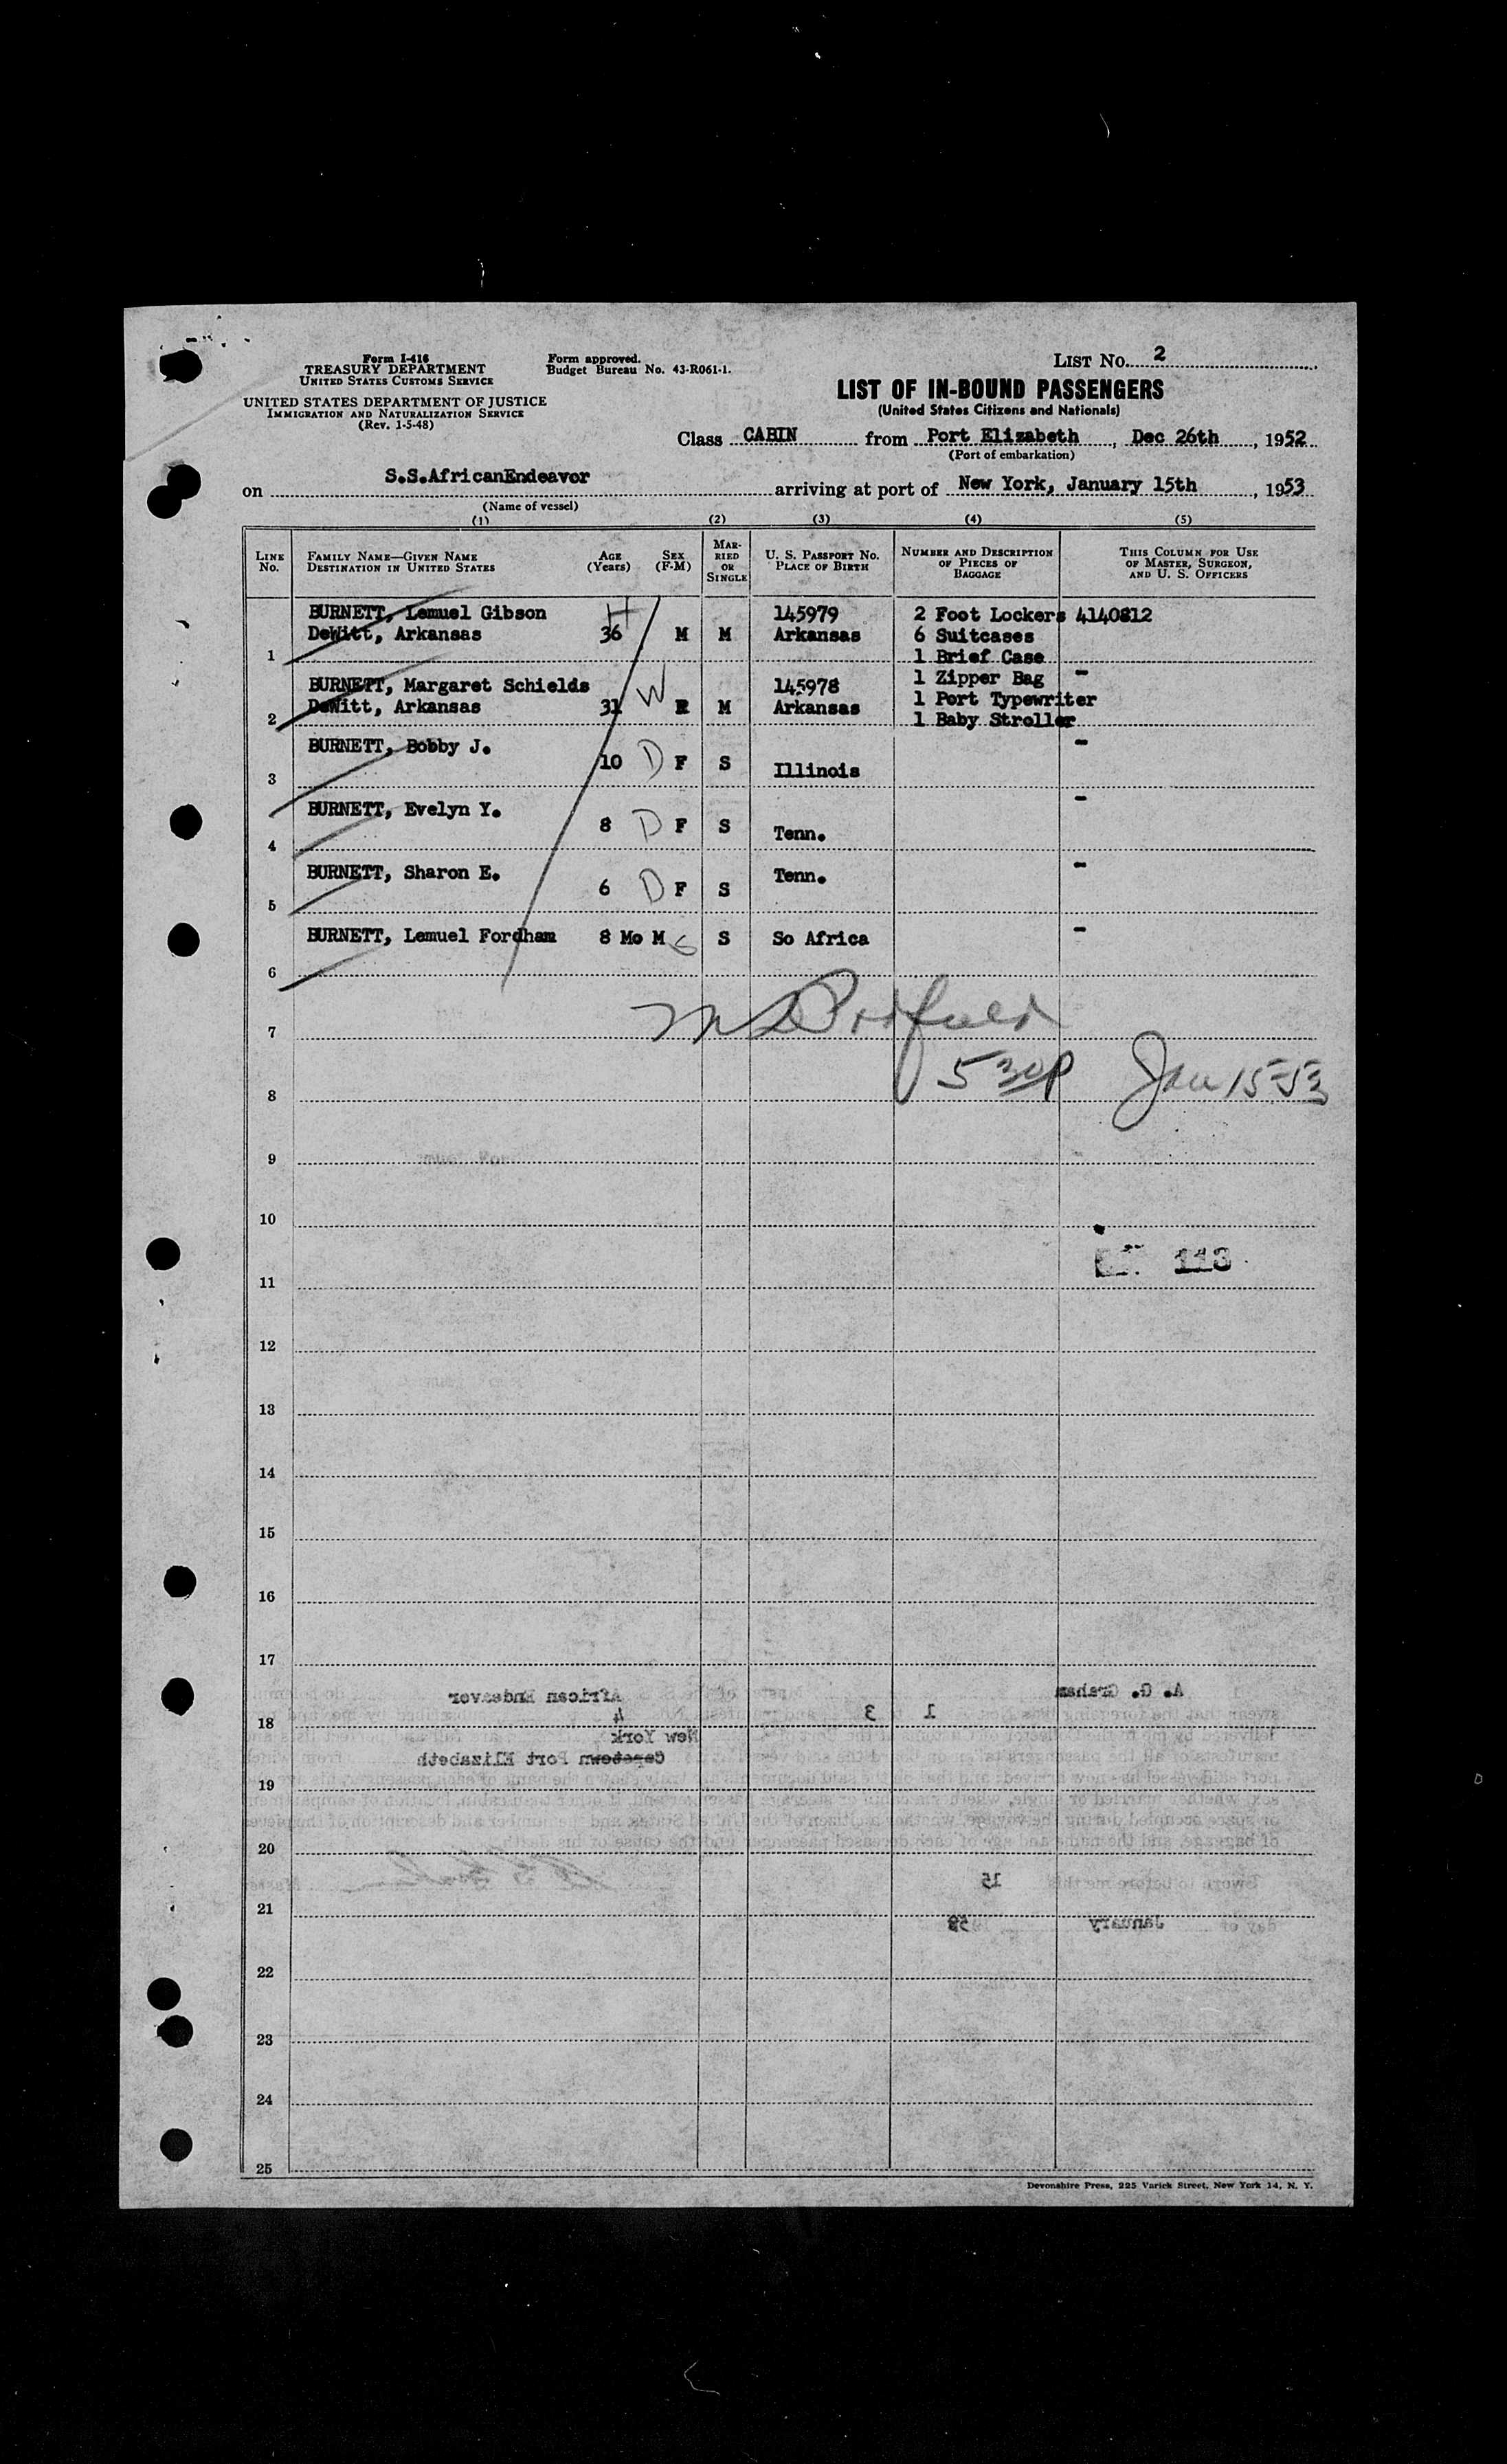 Form I-416
TREASURY DEPARTMENT
UNITED STATES CUSTOMS SERVICE
UNITED STATES DEPARTMENT OF JUSTICE
IMMIGRATION AND NATURALIZATION SERVICE
(Rev. 1-5-48)
Form approved.
Budget Bureau No. 43-R061-1.
LIST No. 2
LIST OF IN-BOUND PASSENGERS
(United States Citizens and Nationals)
Class CABIN from Port Elizabeth, Dec 26th, 1952
(Port of embarkation)
on S.S.AfricanEndeavor arriving at port of New York, January 15th, 1953
(Name of vessel)
(1) (2) (3) (4) (5)
LINE No. FAMILY NAME—GIVEN NAME DESTINATION IN UNITED STATES AGE (Years) SEX (F-M) MARRIED OR SINGLE U. S. PASSPORT No. PLACE OF BIRTH NUMBER AND DESCRIPTION OF PIECES OF BAGGAGE THIS COLUMN FOR USE OF MASTER, SURGEON, AND U. S. OFFICERS
BURNETT, Lemuel Gibson H 145979 2 Foot Lockers 4140812
DeWitt, Arkansas 36 M M Arkansas 6 Suitcases
1 1 Brief Case
1 Zipper Bag -
BURNETT, Margaret Schields W 145978
DeWitt, Arkansas 31 M Arkansas 1 Port Typewriter
2 1 Baby Stroller
BURNETT, Bobby J. -
10 D F S Illinois
3
BURNETT, Evelyn Y. -
8 D F S Tenn.
4
BURNETT, Sharon E. Tenn. -
6 D F S
5
BURNETT, Lemuel Fordham 8 Mo M S So Africa -
6
7
530P Jan 15-53
8
9
10
113
11
12
13
14
15
16
17
A. G. Graham African Endeavor
18 1 3 4
New York
Capetown Port Elizabeth
19
20
15
21
January
22
23
24
25
Devonshire Press, 225 Varick Street, New York 14, N. Y.